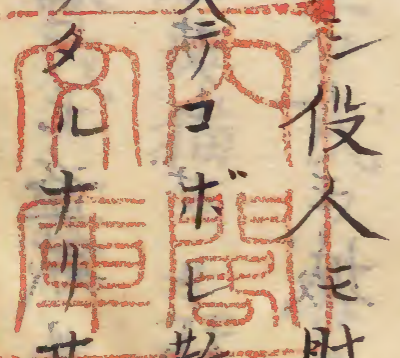 シ役人モ財
ステコボヒ散
タルナリサ
内閣
文庫